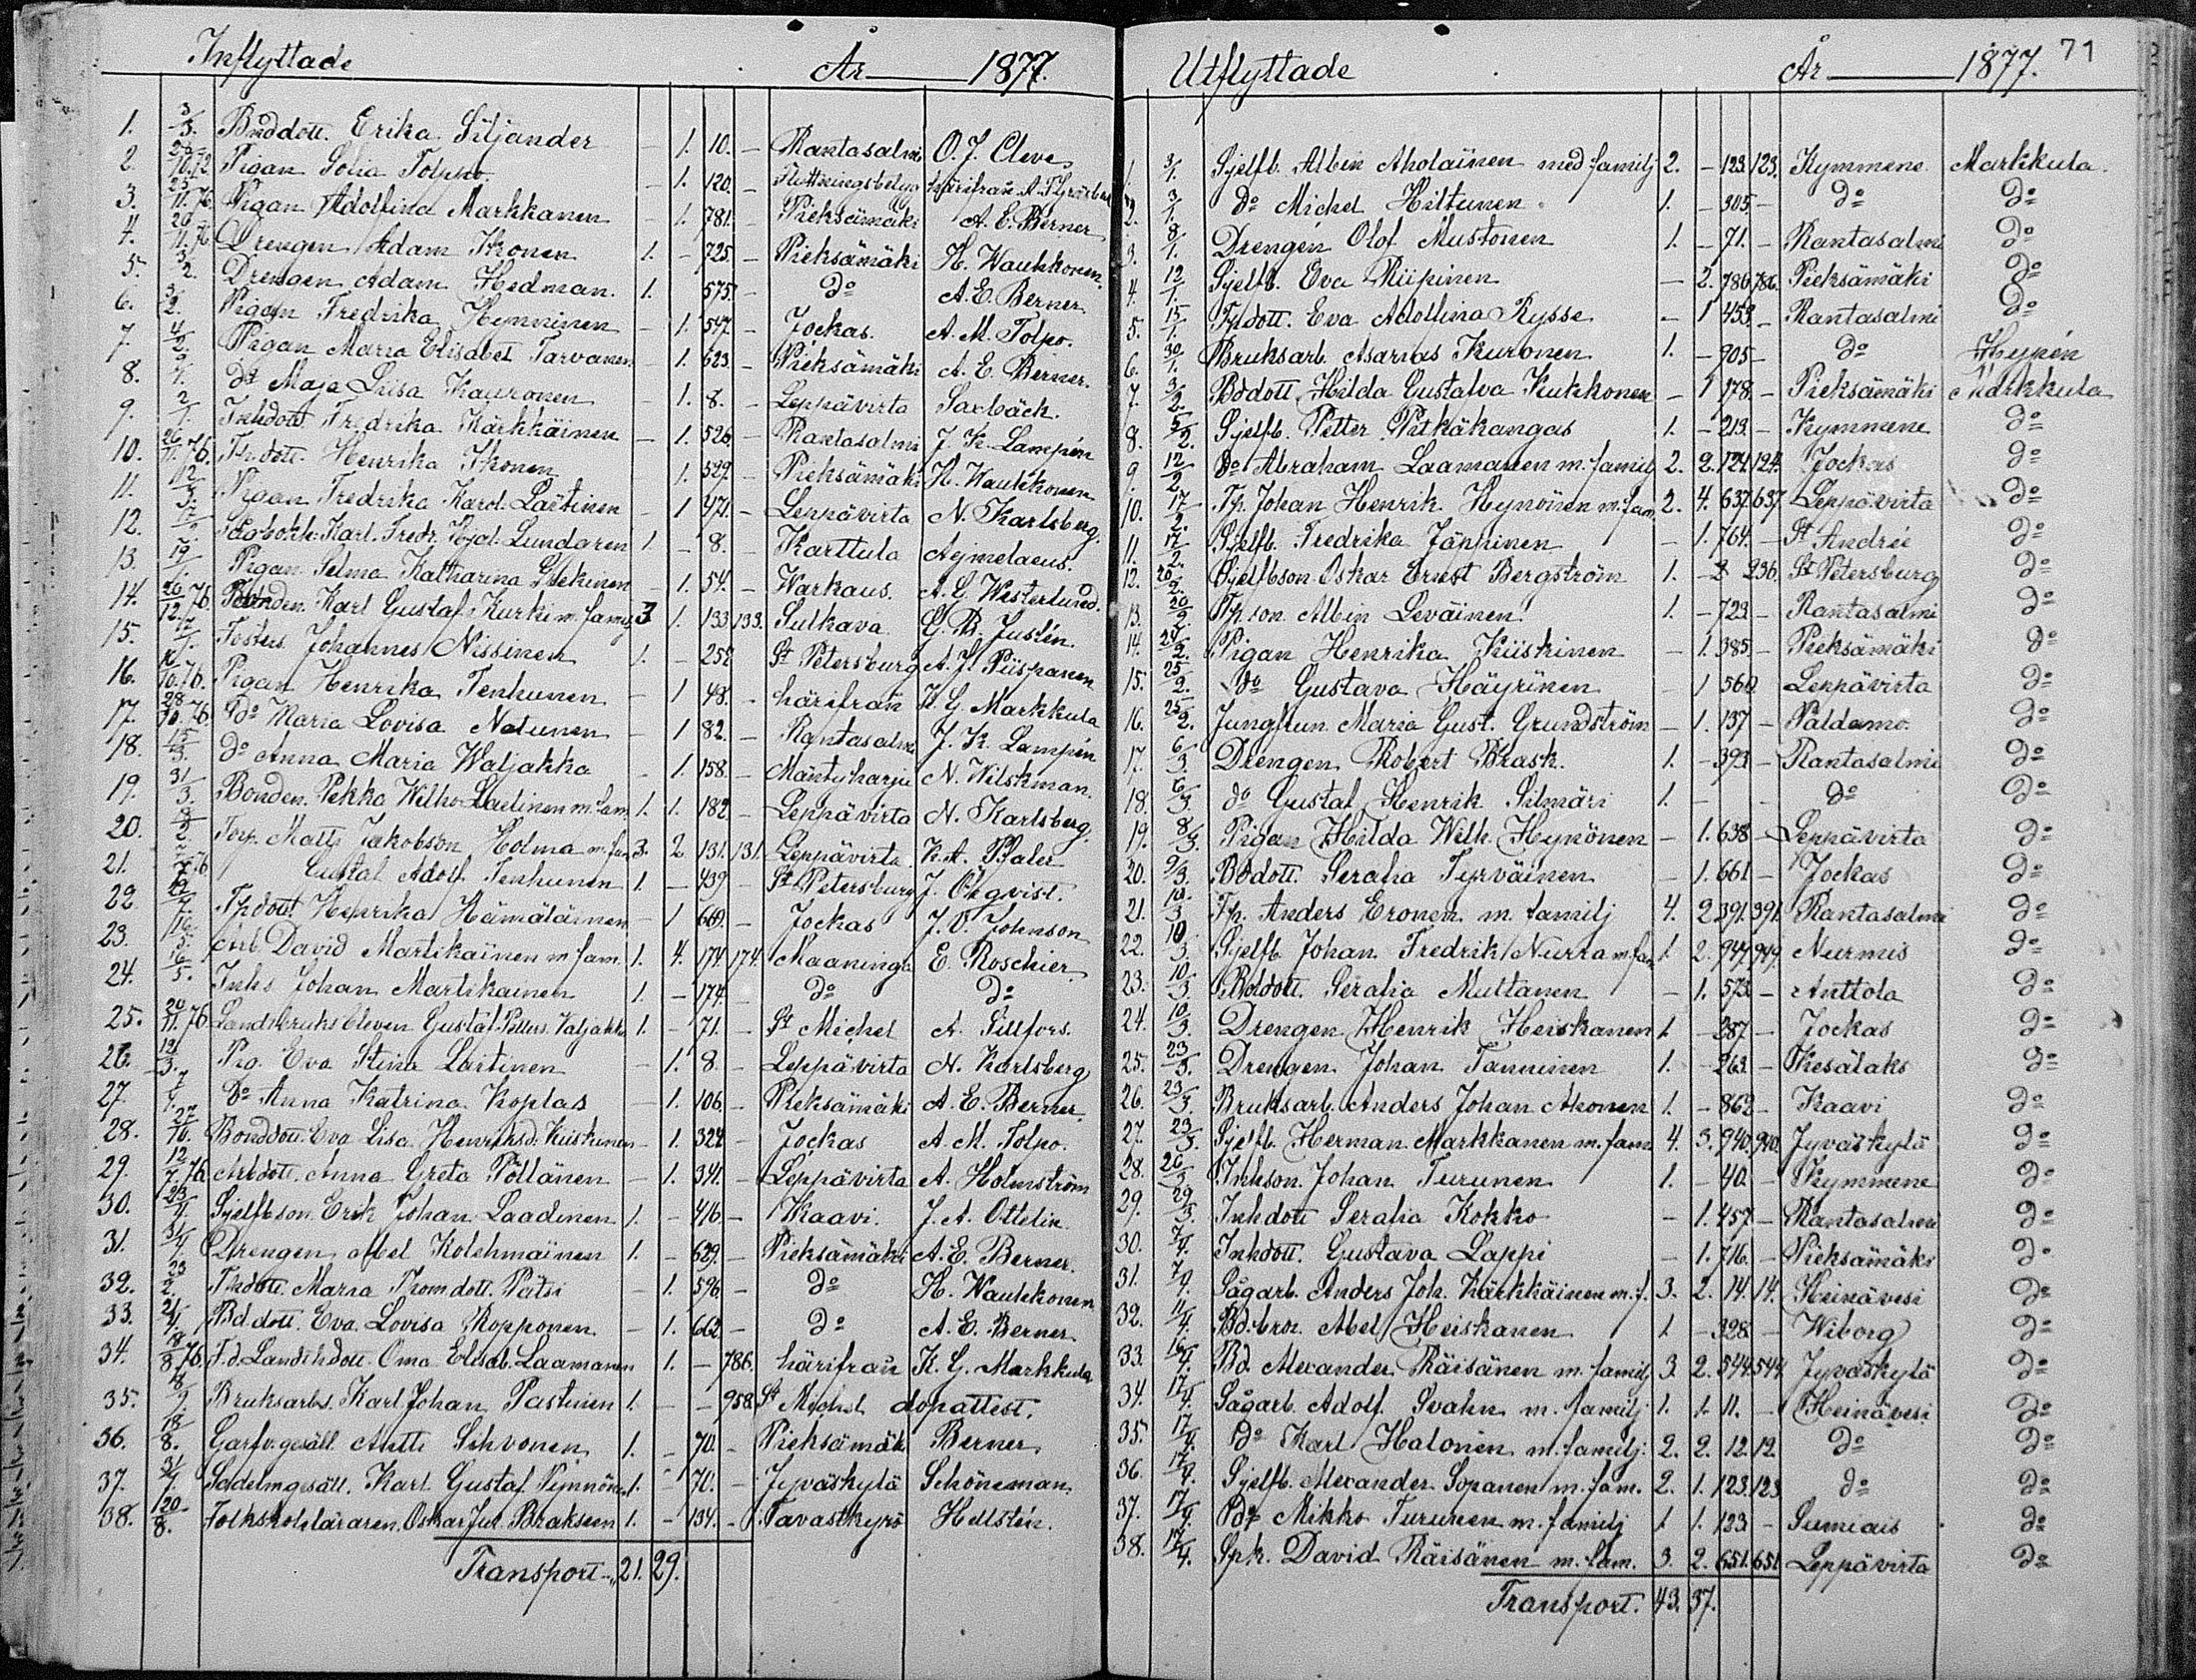 Inflyttade År 1877.
1. 3/3. Bnddott. Erika Siljander - 1. 10. - Rantasalmi O. J. Cleve
2. 10.72. Pigan Sofia Tolppo - 1. 120. - Flyttningsbetyg härifrån
3. 11.76. Pigan Adolfina Markkanen - 1. 781. - Pieksämäki A. E. Berner
4. 20/11.76. Drengen Adam Ikonen 1. - 725. - Pieksämäki H. Waukkonen.
5. 3/2. Drengen Adam Hedman. 1. 575. - do A. E. Berner
6. 3/2. Pigan Fredrika Hynninen - 1. 547. - Jockas. A. M. Tolpo.
7. 4/2. Pigan Maria Elisabet Tarvanen - 1. 623. - Pieksämäki A. E. Berner.
8. do Maja Lisa Kauronen - 1. 8. - Leppävirta Saxbäck.
9. 2/1. Inhdott. Fredrika Kärkkäinen - 1. 526. - Rantasalmi J. K. Lampén
10. 26/11.76. Th.dott. Henrika Ikonen 1. 529. - Pieksämäki H. Waukkonen
11. 12/3. Pigan Fredrika Karol. Laitinen - 1 471. - Leppävirta N. Karlsberg.
12. Karl. Fredr. Lundgren 1. - 8. - Karttula Aejmelaeus.
13. 19/1. Pigan Selma Katharina - 1. 54. - Warkaus. A. L. Westerlund.
14. 26/12.76. Bonden. Karl Gustaf Kurki m. familj 3 1. 133 133. Sulkava G. B. Justén.
15. 17/1. Fosters. Johannes Nissinen 1. - 252 St Petersburg A. J. Piispanen
16. 10.76. Pigan Henrika Tenhunen - 1 48. - härifrån K. G. Markkula
17. 28/10.76. do Maria Lovisa Natunen - 1 82. - Rantasalmi J. K. Lampén
18. 15/3. do Anna Maria Waljakka - 1. 158. - Mäntyharju N. Wilskman.
19. 31/3. Bonden. Pekka Wilho Laitinen m. fam 1. 1. 182. - Leppävirta N. Karlsberg.
20. 8/2. Torp. Matts Jakobson Holma m. fam 3. 2 131. 131. Leppävirta K. A. Pfaler
21. Gustaf Adolf Tenhunen 1. - 439 - St Petersburg J. Öhqvist.
22 Thdott. Henrika Hämäläinen - 1 669. - Jockas J. V. Johnson
23. 16/5. Arb David Martikainen m fam. 1. 4. 174 174. Maaninga E. Roschier
24. 16/5. Inhs Johan Martikainen 1. - 174. - do do
25. 20/11.76. Landtbruks Eleven Gustaf Petters. Valjakka 1. - 71. - St Michel A. Sillfors.
26. 12/3. Pig. Eva Stina Laitinen - 1. 8. - Leppävirta N. Karlsberg
27. 7/4. do Anna Katrina Koplas - 1. 106. - Pieksämäki A. E. Berner
28. 27/10. Bonddott. Eva Lisa Henriksd. Kiiskinen - 1. 322 - Jockas A. M. Tolpo.
29. 12/7.76. Arbdott. Anna Greta Pöllänen - 1. 341. - Leppävirta A. Holmström
30. 23/4. Sjelfbson. Erik Johan Laadinen 1. - 416 - Kaavi. J. A. Ottelin
31. 31/4. Drengen Abel Kolehmainen 1. - 629. - Pieksämäki A. E. Berner.
32. 23/2. Thdott. Maria Thomdott. Patsi - 1. 596 - do H. Waukkonen
33. 21/4. Bd.dott. Eva Lovisa Kopponen - 1. 662 - do A. E. Berner
34. 18/8.76. F.d. Landthdott. Oma Elisab. Laamanen 1. - 786. härifrån K. G. Markkula
35. 18/9. Bruksarbs. Karl Johan Pastinen 1. - - 958. St Michel dopattest.
36. 18/8. Garfv.gesäll. Antti Sihvonen. 1. - 70. - Pieksämäki Berner
37. 31/7. Sadelmgesäll. Karl Gustaf Pynnönen 1. - 70. - Jyväskylä Schöneman.
38. 20/8. Folkskoleläraren. Oskar Jul. Braksen 1. - 134. - Tavastkyrö Hellstén.
Transport - 21. 29.
Utflyttade År 1877. 71
1. 3/1. Sjelfb. Albin Aholainen med familj 2. - 123. 123. Kymmene Markkula.
2. 3/1. do Michel Hiltunen 1. - 305. - do do
3. 8/1. Drengen Olof Mustonen 1. - 71. - Rantasalmi do
4. 12/1. Sjelfb. Eva Riipinen - 2. 786 786. Pieksämäki do
5. 15/1. Tpldott. Eva Adolfina Rysse - 1 453. - Rantasalmi do
6. 30/1. Bruksarb. Asarias Kuronen 1. - 905 - do Hypén
7. 3/2. Bddott. Hilda Gustafva Kukkonen - 1 178. - Pieksämäki Markkula
8. 5/2. Sjelfb. Petter Pitkäkangas 1. - 213. - Kymmene do
9. 12/2. do Abraham Laamanen m. familj 2. 2. 124. 124. Jockas do
10. 17/2. Tp. Johan Henrik Hynönen m. fam. 2. 4. 637. 637. Leppävirta do
11. 17/2. Sjelfb. Fredrika Jäppinen - 1. 764. - St Andrée do
12. 20/2. Sjelfbson Oskar Ernest Bergström 1. - 236. St Petersburg do
13. 20/2. Tp.son. Albin Leväinen 1. - 723. - Rantasalmi do
14. 24/2. Pigan Henrika Kiiskinen - 1. 385 - Pieksämäki do
15. 25/2. do Gustava Häyrinen - 1 560. Leppävirta do
16. 25/2. Jungfrun. Maria Gust. Grundström - 1. 137 - Paldamo. do
17. 6/3. Drengen Robert Brask. 1. - 393 - Rantasalmi do
18. 6/3. do Gustaf Henrik Silmäri 1. - - do do
19. 8/3. Pigan Hilda Wilh. Hynönen - 1. 638 - Leppävirta do
20. 9/3. Bddott. Serafia Tyrväinen - 1. 661 - Jockas do
21. 10/3. Tp. Anders Eronen m. familj 4. 2 391. 391. Rantasalmi do
22. 10/3. Sjelfb Johan Fredrik Nurra m. fam 1. 2. 949. Nurmis do
23. 10/3. Bddott. Serafia Muttanen - 1. 573. - Anttola do
24. 10/3. Drengen Henrik Heiskanen 1 - 287 - Jockas do
25. 23/3. Drengen Johan Tanninen 1. - 263. - Kesälaks do
26. 23/3. Bruksarb. Anders Johan Ahonen 1. - 862 - Kaavi do
27. 23/3. Sjelfb. Herman Markkanen m. fam 4. 3. 940. 940. Jyväskylä do
28. 26/3. Inhson Johan Turunen 1. - 40. - Kymmene do
29. 29/3. Inhdott Serafia Kokko - 1. 457. - Rantasalmi do
30. 7/4. Inhdott. Gustava Lappi - 1. 716. - Pieksämäki do
31. 7/4. Sågarb. Anders Joh. Kärkkäinen m. f. 3. 2. 14. 14. Heinävesi do
32. 11/4. Bd.bror. Abel Heiskanen 1 - 328. - Wiborg do
33. 16/4. Bd. Alexander Räisänen m. familj 3. 2. 544. 544. Jyväskylä do
34. 17/4. Sågarb. Adolf Svahn m. familj 1. 1. 11. - Heinävesi do
35. 17/4. do Karl Halonen m. familj. 2. 2. 12. 12. do do
36. 17/4. Sjelfb. Alexander Sopanen m. fam. 2. 1. 123. 123 do do
37. 17/4. do Mikko Turunen m. familj 1 1. 123 - Sumiais do
38. 17/4. Spk. David Räisänen m. fam. 3. 2. 651. 651 Leppävirta do
Transport. 43. 37.